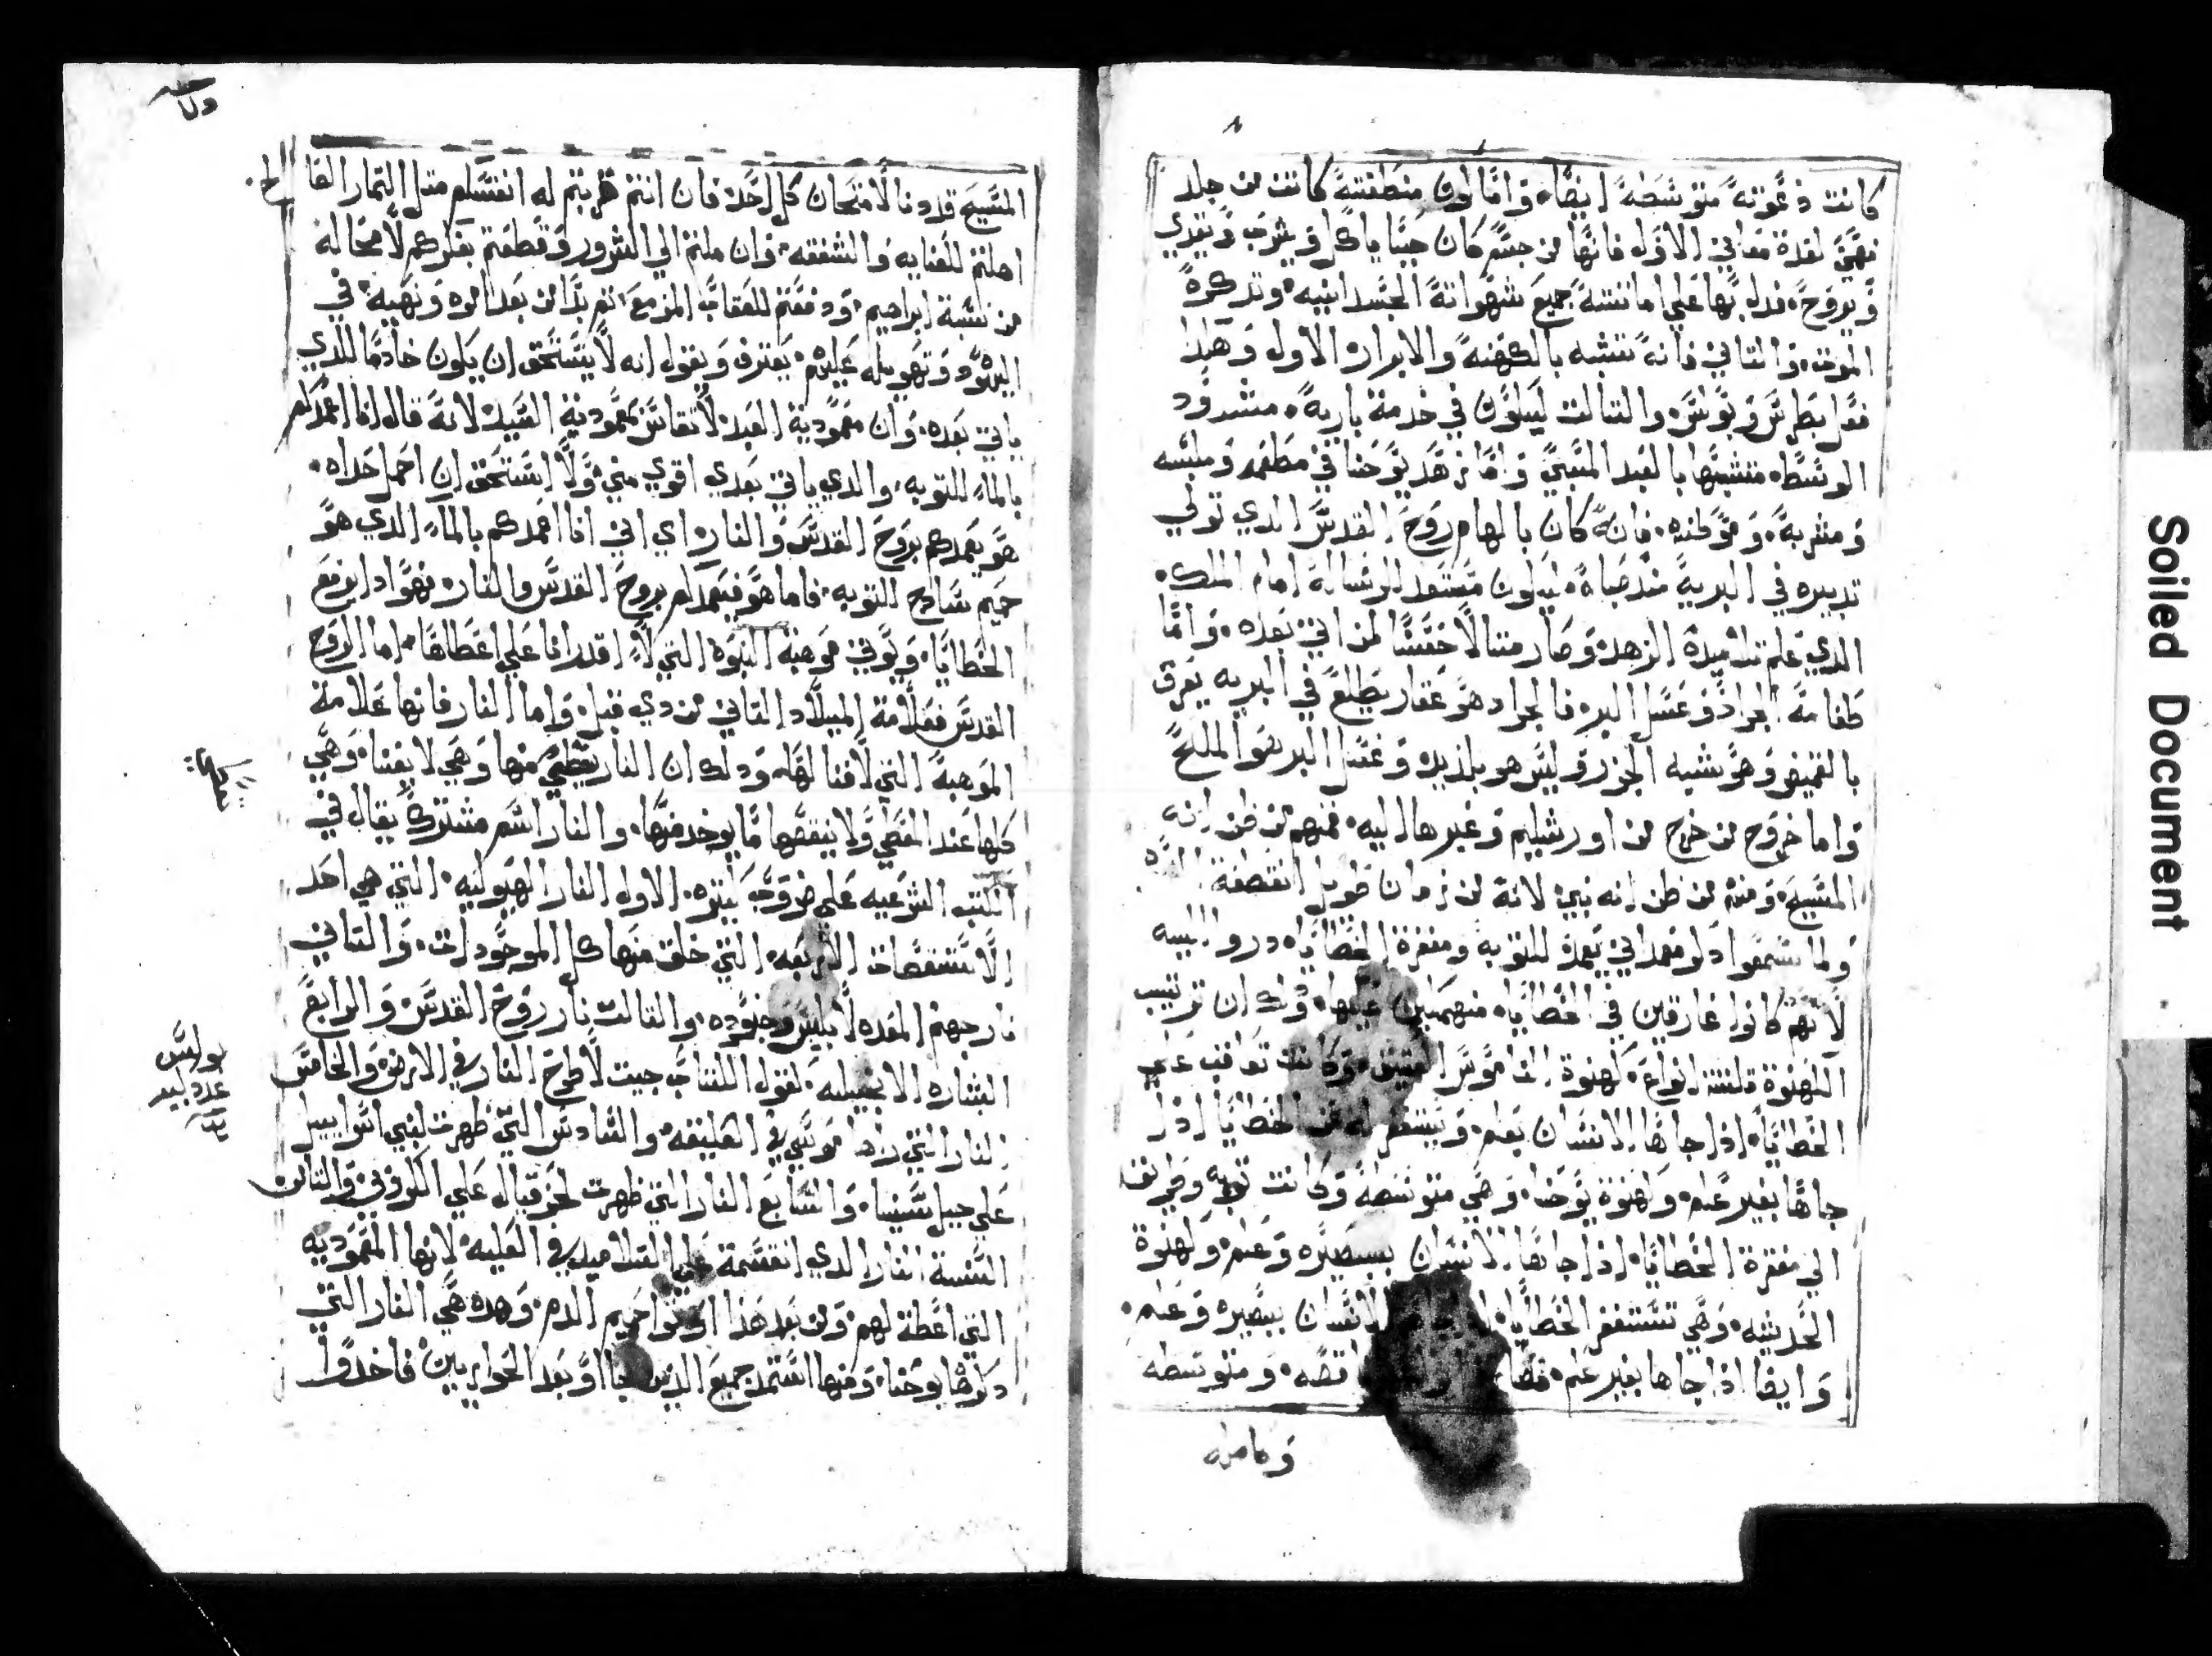 كانت دعوته متوسطه ايضا، واما كون منطقته كانت من جلد
فهي لعدة معاني الاول فانها من جسم كان حيا ياكل ويشرب ويغدي
ويروح، فدل بها على اماتته جميع شهواته الجسدانيه، وتدكره
الموت، والتاني فانه تشبه بالكهنه والابرار الاول وهكدا
فعل بطرس وبولس، والتالت ليكون في خدمة باريه، مشدود
الوسط، متشبها بالعبد المتعبي، واما زهد يوحنا في مطعمه وملبسه
ومشربه، وموطنه، فانه كان بالهام روح القدس الدي تولي
تدبيره في البرية مند صباه، ليكون مستعد الرساله امام الملك،
الدي علم تلاميده الزهد، وصار متالا حسنا لمن اتي بعده، واما
طعامه الجراد وعسل البر، فالجراد هو عقار يطلع في البريه يعرف
بالقميص وهو شبيه الجزر، وليس هو بلديد، وعسل البر هو الملح
واما خروج من خرج من اورشليم وغيرها اليه، فمنهم من ظن انه
المسيح، ومنهم من ظن انه نبي، لانه من زمان طويل انقطعة
ولما سمعوا دكر معمداني يعمد للتوبه ومغفرة الخطايا، دروا اليه
لانهم كانوا غارقين في الخطايا، منهمكين عليها، ودلك ان ترتيب
الكهنوة تلتة انواع، كهنوة الناموس العتيق، وكانت تعاقب علي
الخطايا، ادا جاها الانسان بعلم، وتستغفر له من الخطايا ادا
جاها بغير علم، وكهنوة يوحنا، وهي متوسطه وكانت توبه وطريقه
الي مغفرة الخطايا، ادا جاها الانسان ببصيره وعلم، وكهنوة
الحديثه، وهي تستغفر الخطايا، الانسان ببصيره وعلم،
وايضا ادا جاها بغير علم، ومتوسطه
وكامله
المسيح قد دنا لامتحان كل احد، فان انتم قربتم له انفسكم متل التمار التا
اهلتم للعنايه والشفقه، وان ملتم الي الشرور وقطعتم بعدكم لا محاله
من نسبة ابراهيم، ودفعتم للعقاب المزمع، تم بدا من بعد انوه ونهيه، في
اليهود وتهويله عليهم، يعترف ويقول انه لا يستحق ان يكون خادما للدي
ياتي بعده، وان معمودية العبد لا تقاس بمعمودية السيد لانه قال انا اعمدكم
بالماء للتوبه، والدي ياتي بعدي اقوي مني ولا استحق ان احمل حداه،
هو يعمدكم بروح القدس والنار، اي اني انا اعمدكم بالماء الدي هو
حميم سادج للتوبه، فاما هو فيعمدكم بروح القدس والنار، فهو ادا يرفع
الخطايا، ويوتي موهبة النبوه التي لا اقدر انا علي اعطاها، اما الروح
القدس فعلامة الميلاد التاني من دي قبل، واما النار فانها علامة
الموهبه التي لا فنا لها، ودلك ان النار تعطي منها وهي لا تفنا، وهي
كلها عند المعطي ولا ينقصها ما يوخد منها، والنار اسم مشترك يقال في
الكتب الشرعيه علي ضروب كتيره، الاول النار الهيولنيه، التي هي احد
الاستقصات الاربعه، التي خلق منها كل الموجودات، والتاني
نار جهنم المعده لابليس وجنوده، والتالت نار روح القدس، والرابع
البشاره الانجيليه، لقول الكتاب جيت لاطرح النار في الارض والخامس
النار التي راها موسي في العليقه، والسادس التي ظهرت لبني اسراييل
علي جبل سينا، والسابع النار التي ظهرت لحزقيال علي الكروبي، والتامن
السنة النار الدي انقسمة علي التلاميد في العليه، لانها المعموديه
التي اعطة لهم، ومن بعد هدا حميم الدم، وهده هي النار التي
دكرها يوحنا، ومنها استمد جميع الدين جاوا بعد الحواريين، فاخدوا
بولس